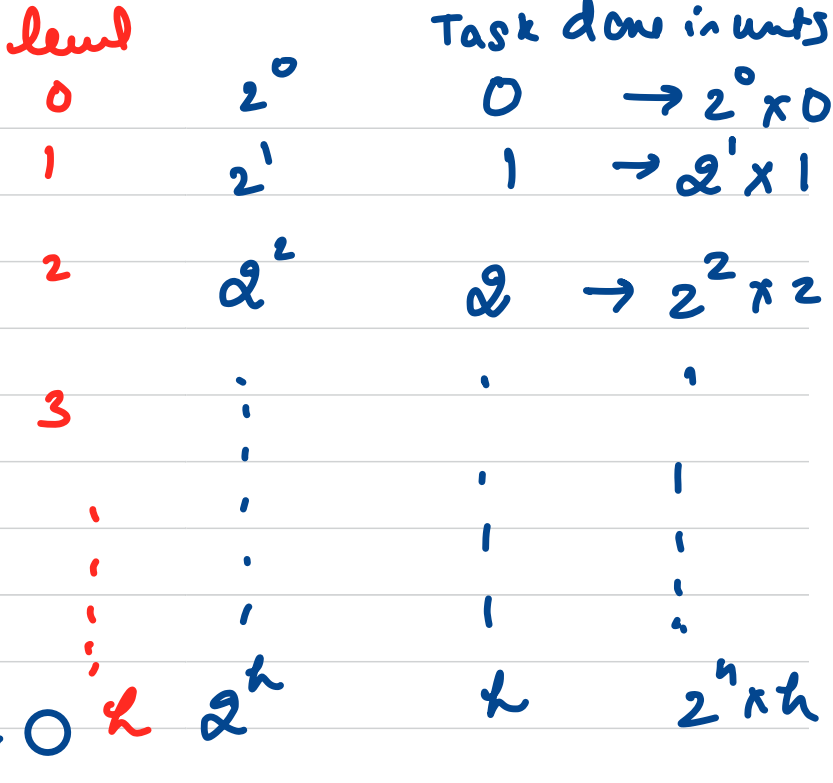 level Task done in units
0 2⁰ 0 → 2⁰ × 0
1 2¹ 1 → 2¹ × 1
2 2² 2 → 2² × 2
3
h 2ʰ h 2ʰ × h